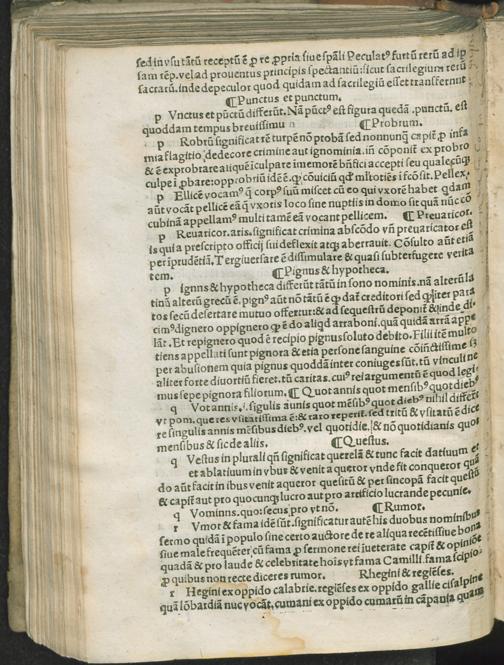 sed in vsu tātū receptū ē ꝓ re ꝓpria siue spāli Peculatꝰ furtū rerū ad ip
sam rēp. vel ad prouentus principis spectantiū: sicut sacrilegium rerū
sacratū. inde depeculor quod quidam ad sacrilegiū esset transferunt
¶Punctus et punctum.
p Vnctus et pūctū differūt. Nā pūctꝰ est figura quedā .punctū. est
quoddam tempus breuissimu ¶Probrum.
p Robrū significat rē turpē nō probā sed nonnunꝗ capit̄ ꝓ infa
mia flagitio dedecore crimine aut ignominia. in cōponit̄ ex probro
& ē exprobrare aliquē īculpare imemorē bn̄fici accepti seu qualecūꝗ
culpe īꝓbare: opprobriū idē ē. ꝙ cōuiciū qd̄ Pellex.
p Ellicē vocamꝰ ꝗ corpꝰ suū miscet cū eo qui vxorē habet qdam
aut vocāt pellicē eā ꝗ vxoris loco sine nuptiis in domo sit quā nūc cō
cubinā appellamꝰ multi tamē eā vocant pellicem. ¶Preuaricor.
p Reuaricor. aris. significat crimina abscōdo vn̄ preuaricator est
is qui a prescripto officij sui deflexit atꝗ aberrauit. Cōsulto aut etiā
per īprudētiā. Tergiuersare ē dissimulare & quasi subterfugere verita
tem. ¶Pignus & hypotheca.
p ignus & hypotheca differūt tātū in sono nominis. nā alterū la
tinū alterū grecū ē. pignꝰ aut nō tātū ē ꝙ dat̄ creditori sed ꝗliter para
tos secū desertare mutuo offertur: & ad sequestrū deponit̄ & inde di
cimꝰ dignero oppignero ꝙ ē do aliqd arraboni. quā quidā arrā appe
lāt. Et repignero quod ē recipio pignus soluto debito. Filii itē multo
tiens appellati sunt pignora & etia persone sanguine cōiūctissime
per abusionem quia pignus quoddā inter coniuges sūt. tū vinculi ne
aliter forte diuortiū fieret. tū caritas. cuiꝰ rei argumentū ē quod legi
mus sepe pignora filiorum. ¶Quot annis quot mensibꝰ quot diebꝰ
q Vot annis. i. sigulis aunis quot mēsibꝰ quot diebꝰ nihil differt
vt pom. que res vsitatissima ē: & raro reperit̄. sed tritū & vsitatū ē dice
re singulis annis mēsibus diebꝰ. vel quotidie. & nō quotidianis quos
mensibus & sic de aliis. ¶Questus.
q Vestus in plurali qn̄ significat querelā & tunc facit datiuum et
et ablatiuum in vbus & venit a queror vnde fit conqueror quā
do aūt facit in ibus venit a queror quesitū & per sincopā facit questū
& capit̄ aut pro quocunꝗ lucro aut pro artificio lucrande pecunie.
q Vominns. quo: secus pro vt nō. ¶Rumor.
r Vmor & fama idē sūt. significatur autē his duobus nominibus
sermo quidā ī populo sine certo auctore de re aliqua recētissiue bona
siue male frequēter cū fama ꝓ sermone rei iueterate capit̄ & opiniōe
quadā & pro laude & celebritate hoīs vt fama Camilli. fama scipio.
ꝓ quibus non recte diceres rumor. Rhegini & regiēses.
r Hegini ex oppido calabrie. regiēses ex oppido gallie cisalpine
quā lōbardiā nuc vocāt. cumani ex oppido cumarū in cāpania quam